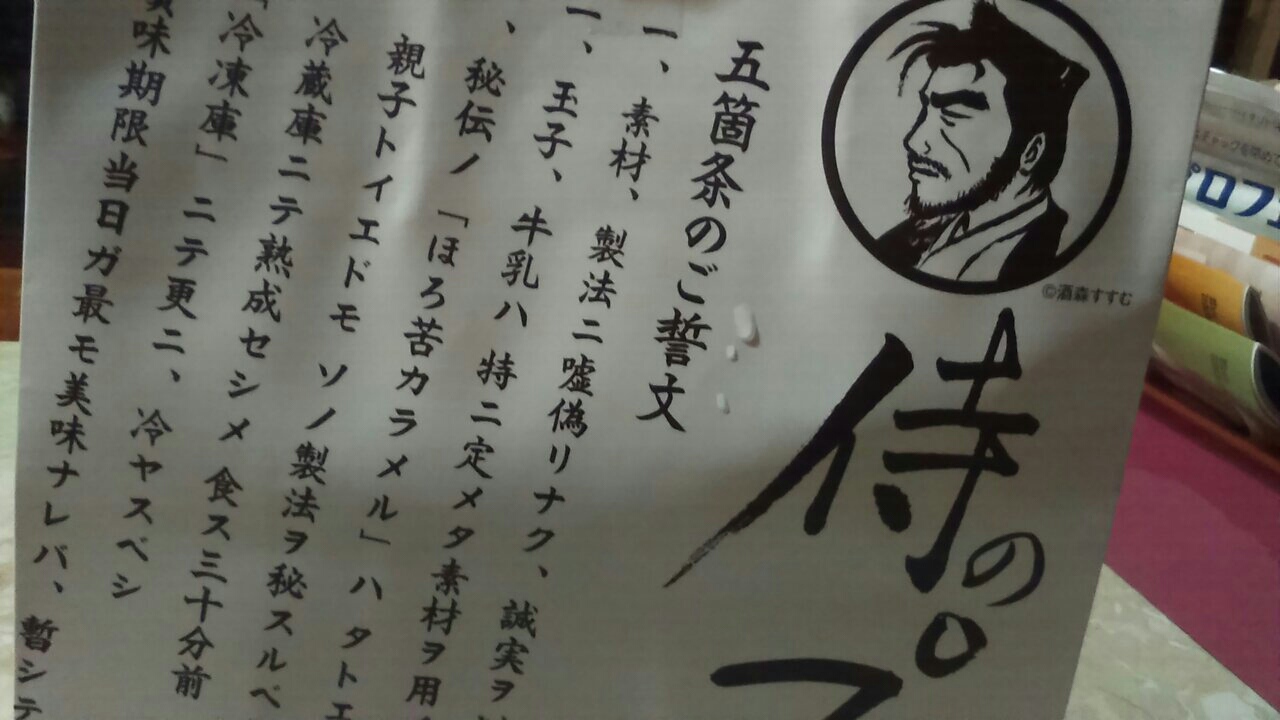 侍のプ
©酒森すすむ
五箇条のご誓文
一、素材、製法ニ嘘偽リナク、誠実ヲ
一、玉子、牛乳ハ 特ニ定メタ素材ヲ用
、秘伝ノ「ほろ苦カラメル」ハ タトエ
親子トイエドモ ソノ製法ヲ秘スルベ
冷蔵庫ニテ熟成セシメ 食ス三十分前
「冷凍庫」ニテ更ニ、冷ヤスベシ
味期限当日ガ最モ美味ナレバ、暫シテ
プロフ